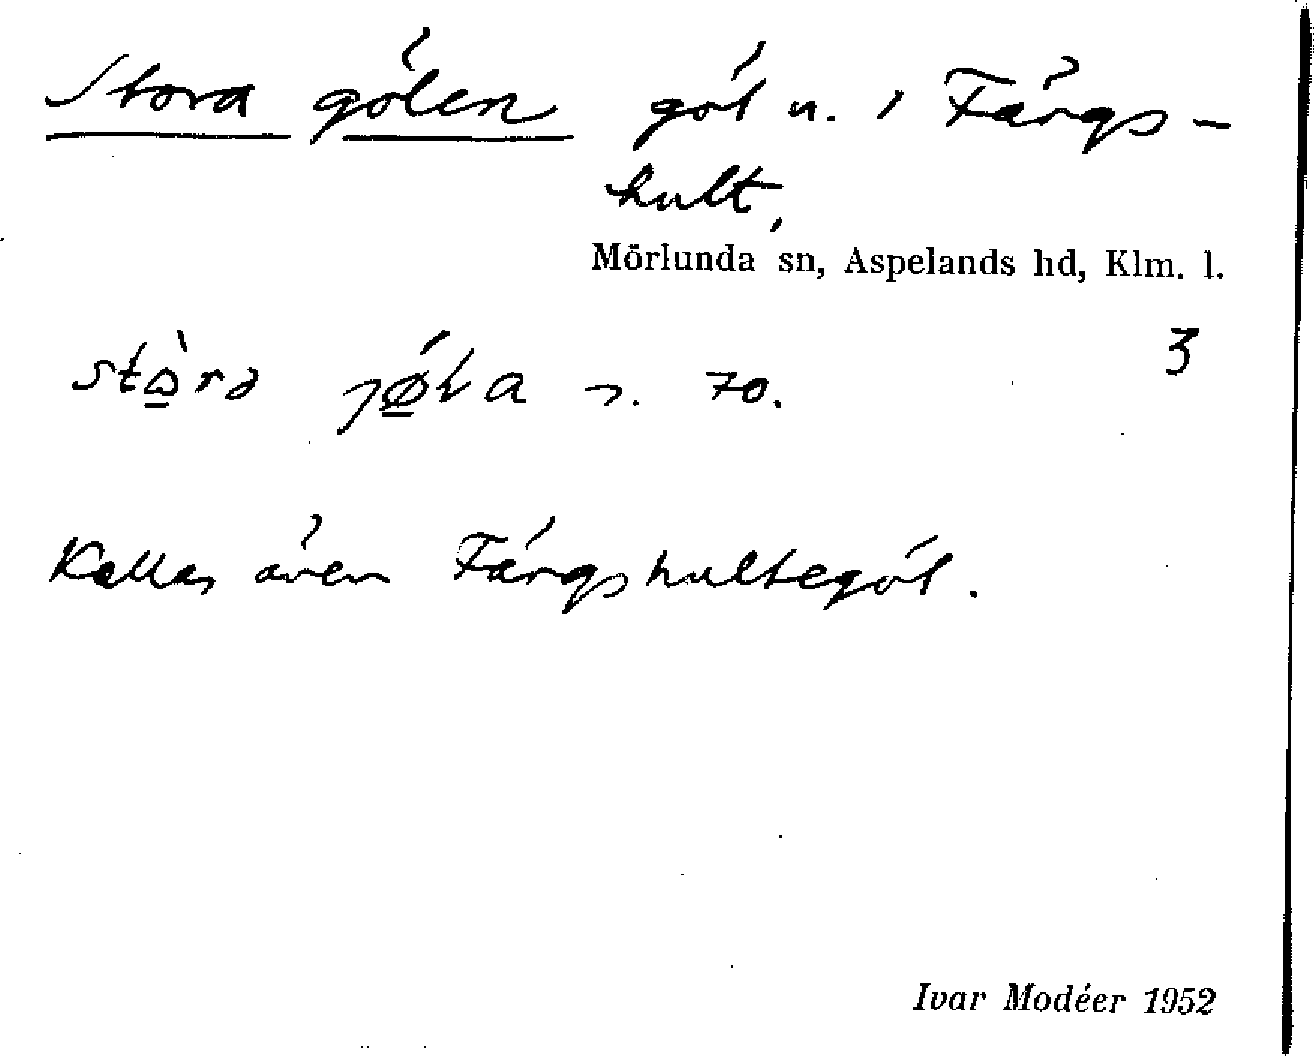 Stora gölen göl n. i Färgs-
hult,
Mörlunda sn, Aspelands hd, Klm. l.
3
70.
Kallas även Färgshultegöl.
Ivar Modéer 1952